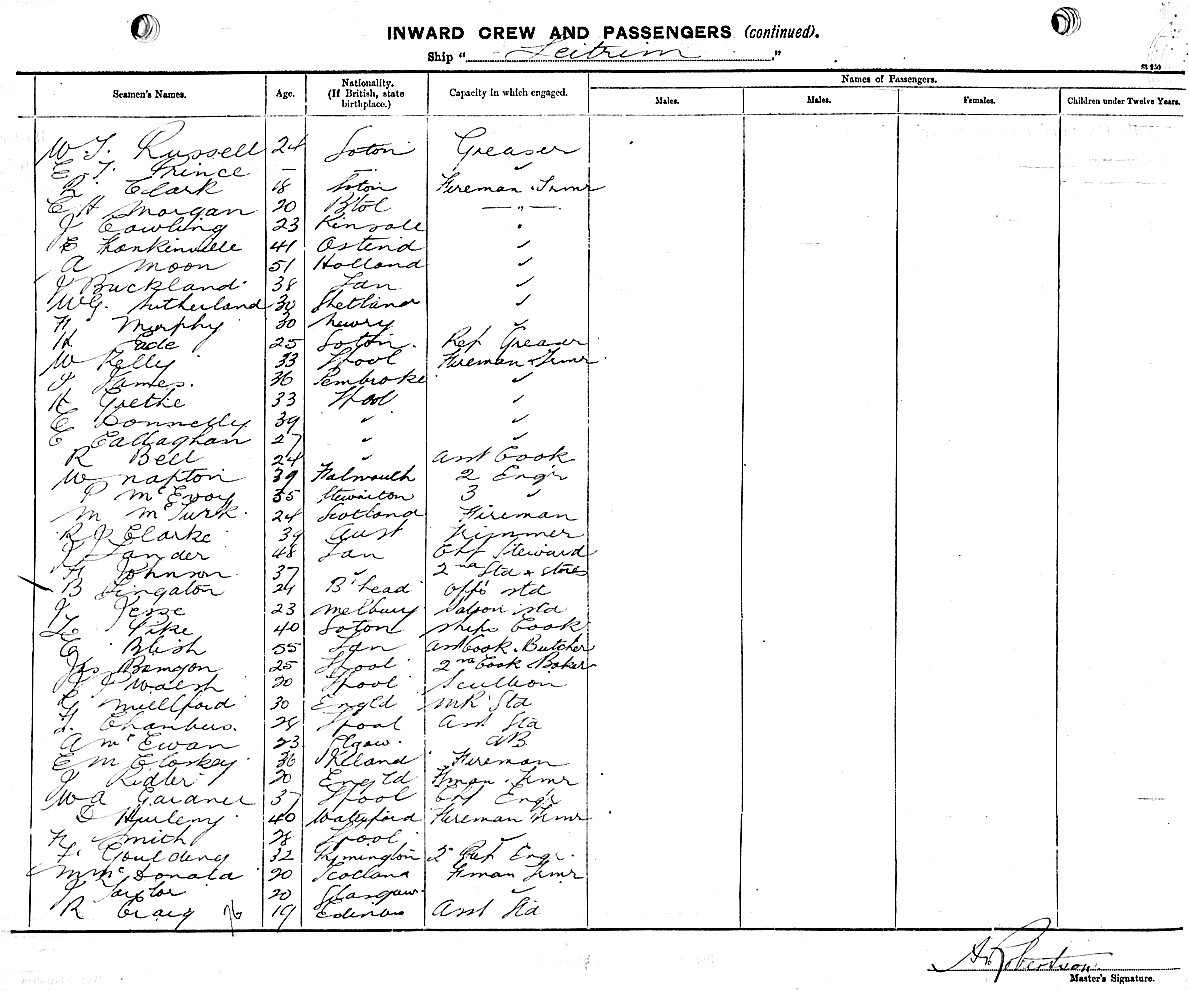 INWARD CREW AND PASSENGERS (continued).
Ship "Leitrim"
Names of Passengers.
Seamen's Names. Age. Nationality. (If British, state birthplace.) Capacity in which engaged. Males. Males. Females. Children under Twelve Years.
W T. Russell 24 Soton Greaser
E. T. Prince — — "
R Clark 18 Soton Fireman Trmr
C H Morgan 20 B'tol — " —
J Cowling 23 Kinsale "
E 41 Ostend "
A Moon 51 Holland "
J Buckland 38 Lan "
W.G. Sutherland 30 Shetland "
H Murphy 30 Newry "
H Eade 25 Soton. Ref Greaser
W Kelly 33 L'pool Fireman & Trmr
J James. 36 Pembroke "
H Grethe 33 L'pool "
E Connelly 39 " "
C Callaghan 27 " "
R Bell 24 " Asst Cook
W Napton 39 Falmouth 2 Engr
P McEvoy 35 Stewarton 3 "
M McTurk. 24 Scotland Fireman
R J Clarke 39 Aust Trimmer
J Lander 48 Lan Chf Steward
H Johnson 37 " 2nd Std & stores
B Singaton 24 B'head offs std
J Jesse 23 Melbury Saloon std
L Pike 40 Soton Ships Cook
C Blish 55 Lan Asst Cook. Butcher
Jas 25 L'pool 2nd Cook Baker
J P Walsh 20 L'pool Scullion
G Millford 30 Engld MR Std
F. Chambers. 28 L'pool Asst Std
A McEwan 23 Glgow. AB
E McCloskey 36 Ireland Fireman
J Ridler 20 Engld Fman. Trmr
W A Gardner 37 L'pool Chf Engr
D Hurleny 40 Waterford Fireman Trmr
H Smith 28 L'pool "
F. Goulding 32 Lymington 2 Ref Engr.
M McDonald 20 Scotland Fman Trmr
J Taylor 20 Glasgow. "
R Craig 19 Edinbro Asst Std
76
A. Robertson
Master's Signature.